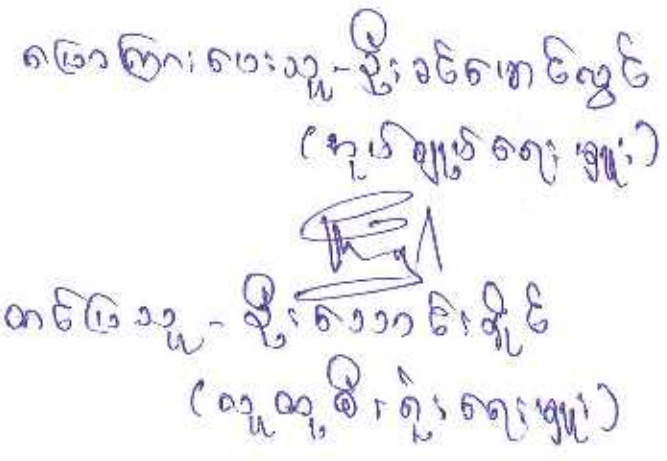 ပြောကြားပေးသူ - ဦးခင်မောင်လွင်
(အုပ်ချုပ်ရေးမှူး)
တင်ပြသူ - ဦးသောင်းနိုင်
(လူထုစီးရုံးရေးမှူး)